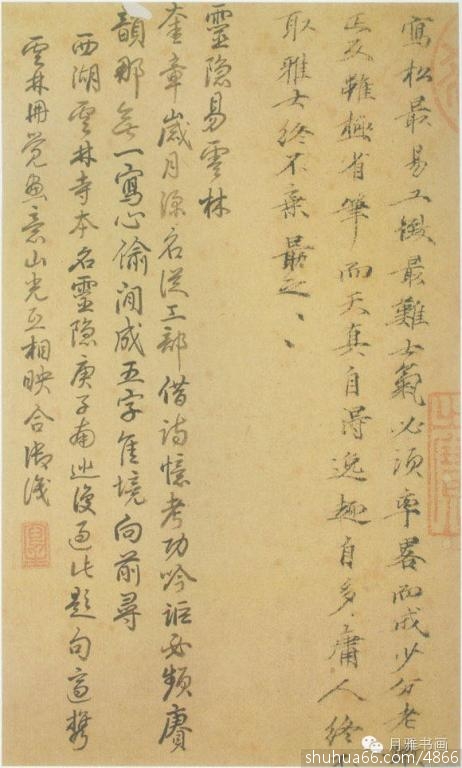 寫松最易工緻最難士氣必須率畧而成少分老
雖極省筆而天真自得逸趣自多庸人終
取雅士終不棄最之、、
靈隱易雲林
奎章歲月深名從工部借詩憶考功吟詎必頻賡
韻那無一寫心偷閒成五字佳境向前尋
西湖雲林寺本名靈隱庚子南巡復過此題句適攜
雲林冊覺畫意山光互相映合御識
月雅书画
shuhua66.com/4866